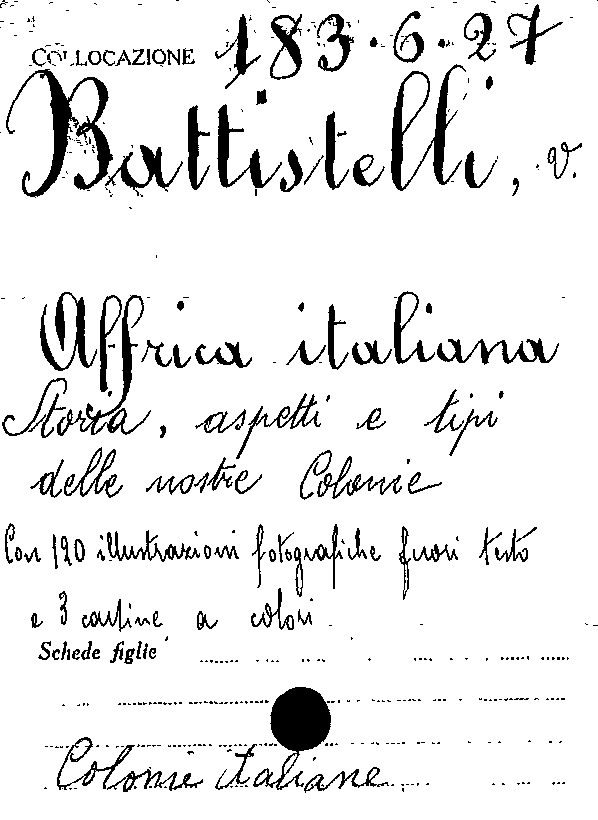 COLLOCAZIONE 183.6.27
Battistelli, v.
Affrica italiana
Storia, aspetti e tipi
delle nostre Colonie
Con 120 illustrazioni fotografiche fuori testo
e 3 cartine a colori
Schede figlie
Colonie italiane